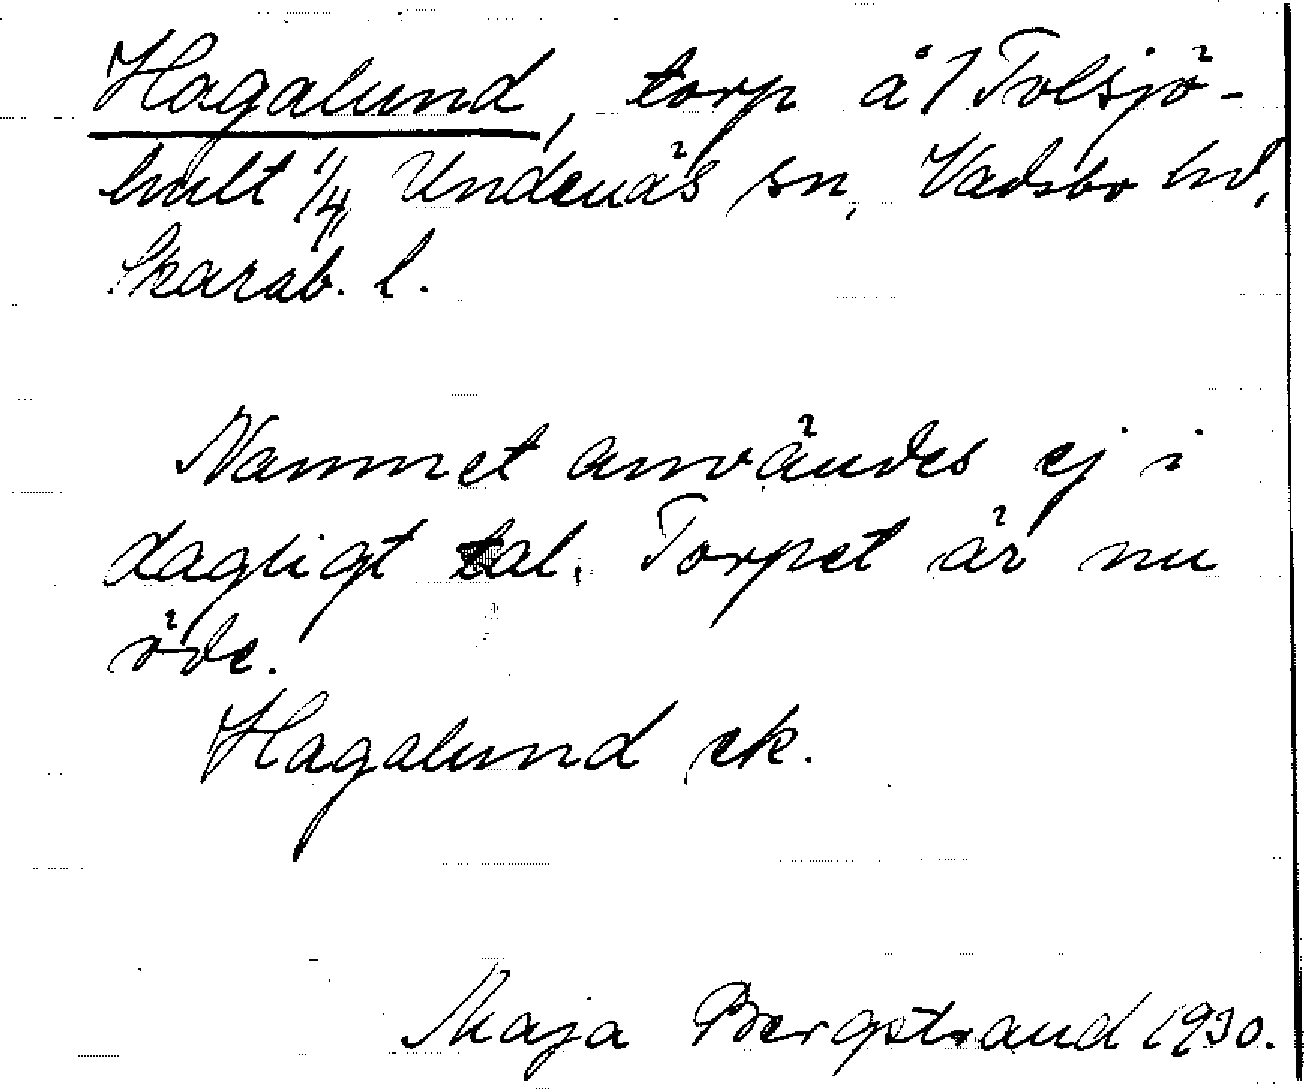 Hagalund, torp å 1 Tolsjö-
hult 1/4, Undenäs sn, Vadsbo hd,
Skarab. l.
Namnet användes ej i
dagligt tal. Torpet är nu
öde.
Hagalund ek.
Maja Bergstrand 1930.